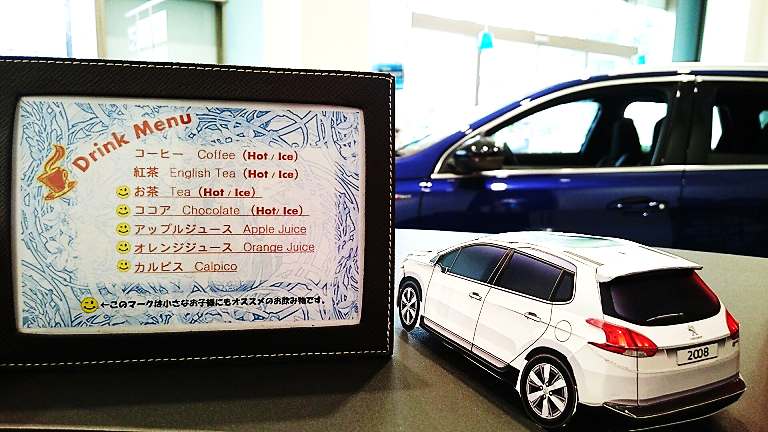 Drink Menu
コーヒー Coffee (Hot / Ice)
紅茶 English Tea (Hot / Ice)
お茶 Tea (Hot / Ice)
ココア Chocolate (Hot/ Ice)
アップルジュース Apple Juice
オレンジジュース Orange Juice
カルピス Calpico
←このマークは小さなお子様にもオススメのお飲み物です。
2008